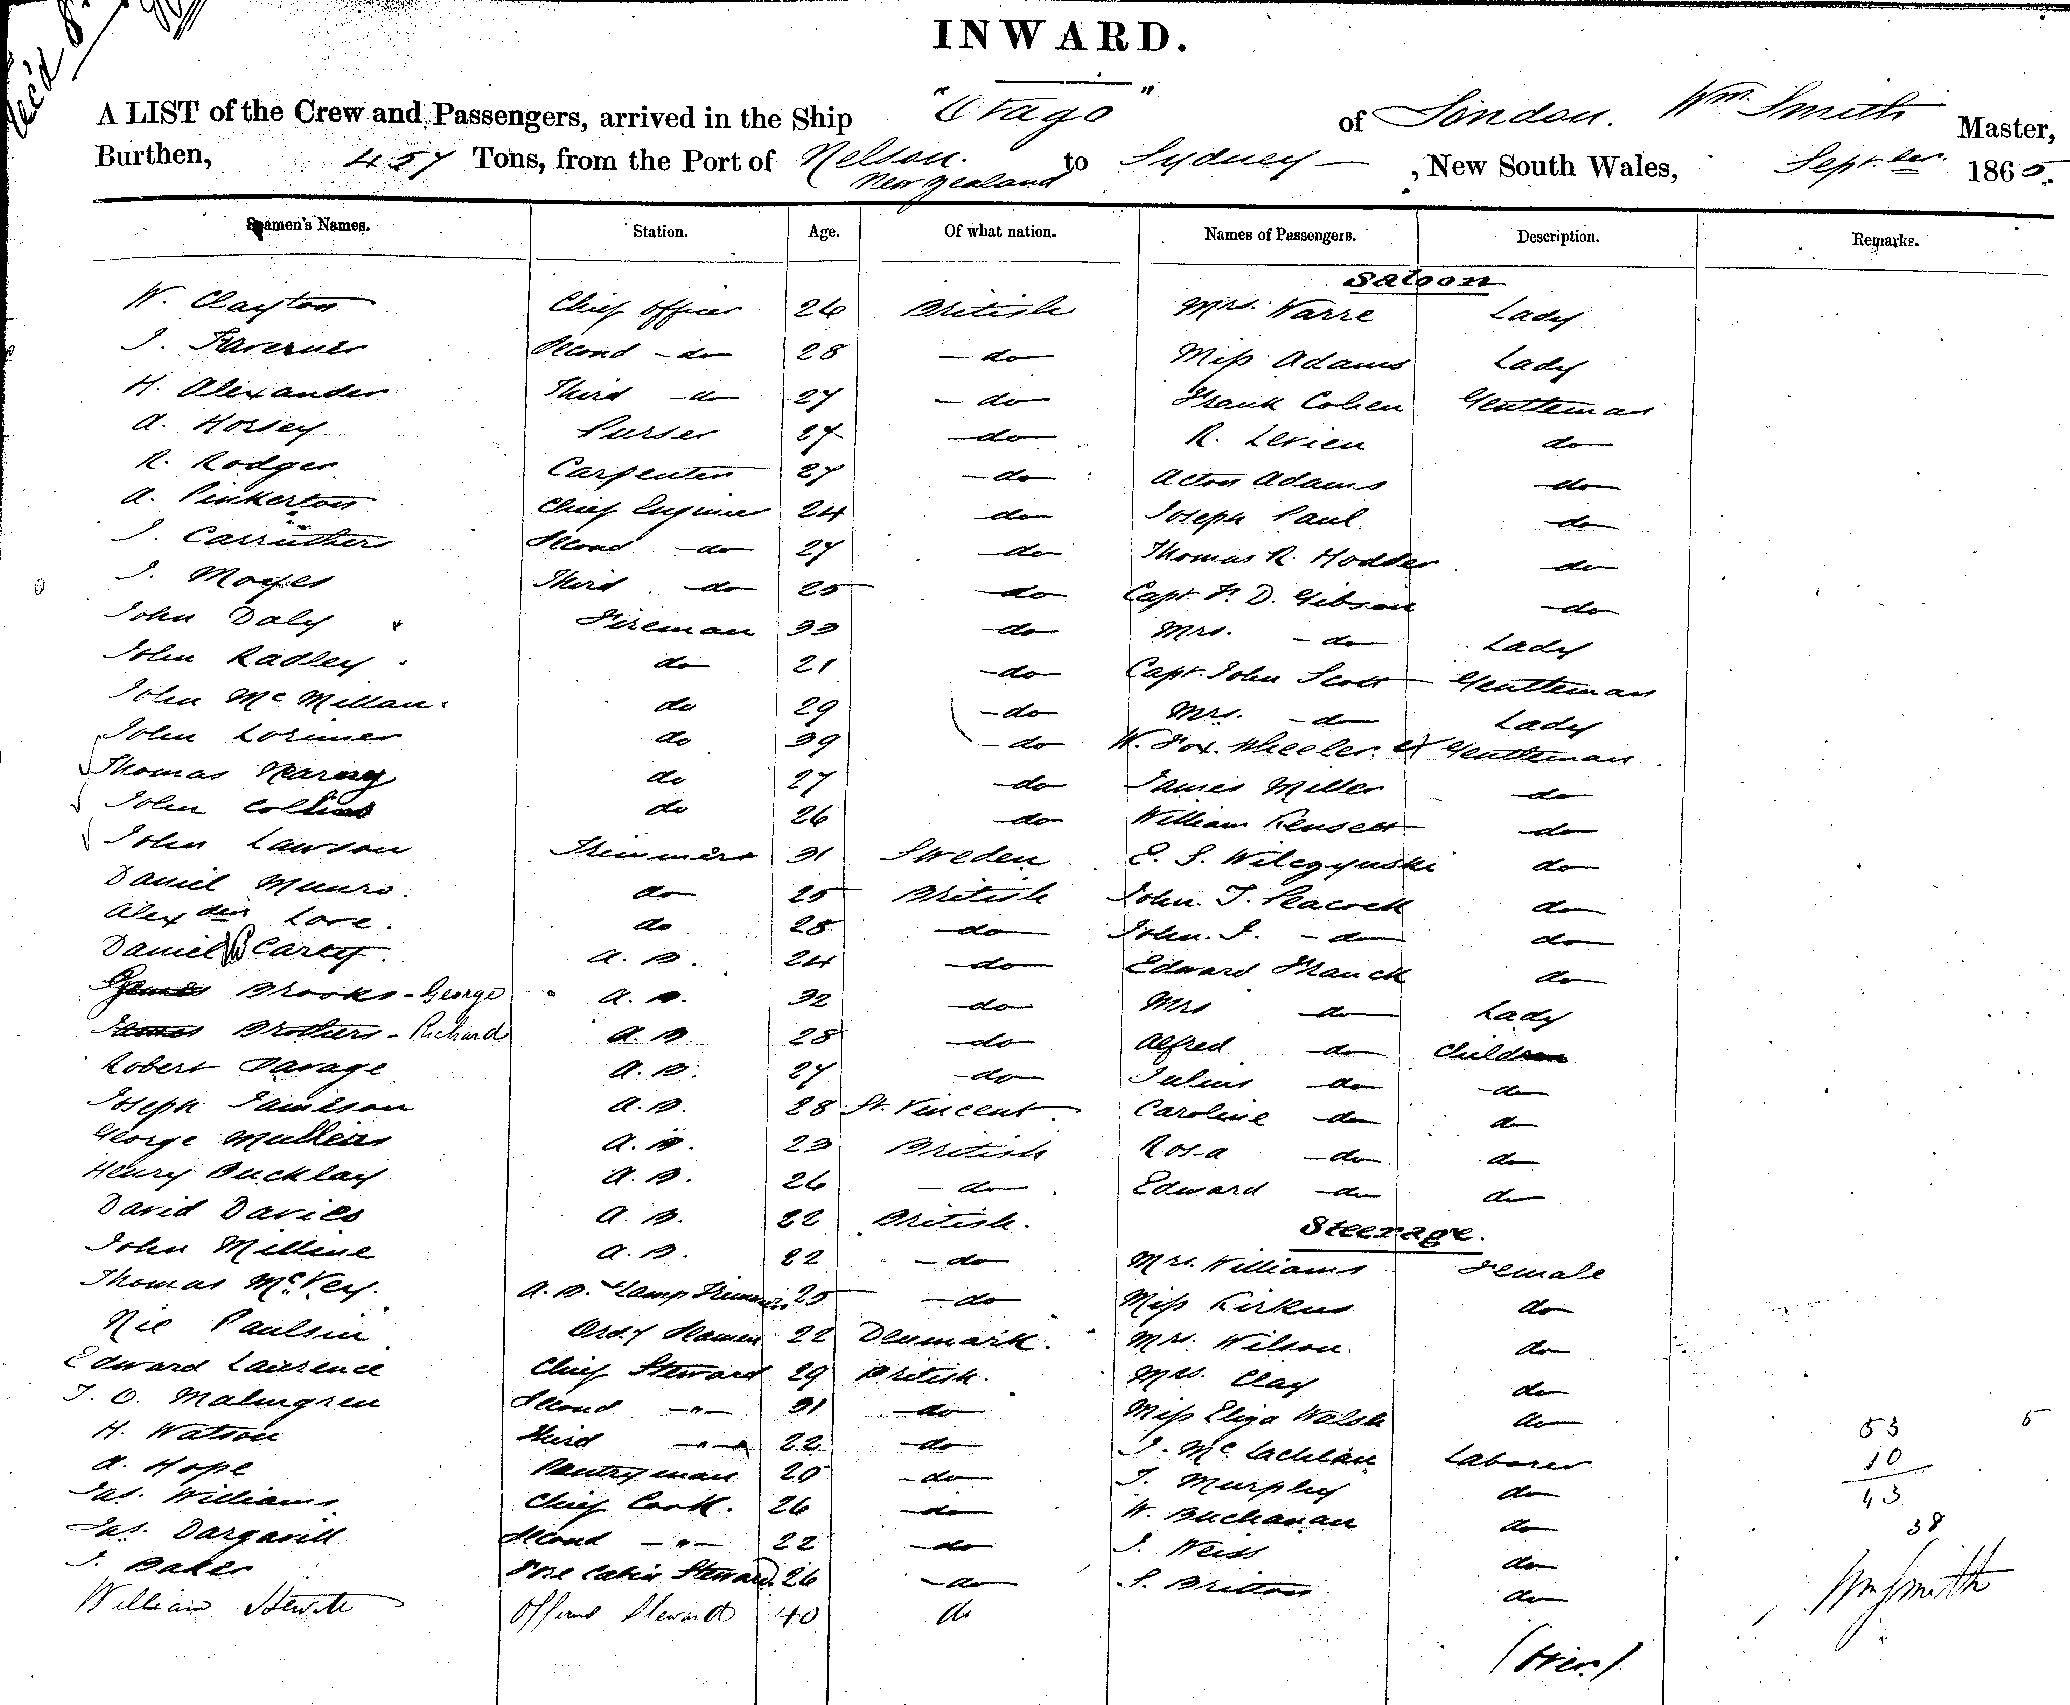 Rec'd 8
INWARD.
A LIST of the Crew and Passengers, arrived in the Ship "Otago" of London. Wm. Smith Master,
Burthen, 457 Tons, from the Port of Nelson. New Zealand to Sydney, New South Wales, Septber. 1865.
Seamen's Names. Station. Age. Of what nation. Names of Passengers. Description. Remarks.
Saloon
W. Clayton Chief Officer 26 British Mrs. Warre Lady
J. Second - do 28 - do Miss Adams Lady
H. Alexander Third - do 27 - do Frank Cohen Gentleman
A. Horsey Purser 27 - do R. Levien do
R. Rodger Carpenter 27 - do Acton Adams do
A. Pinkerton Chief Engineer 24 do Joseph Paul do
J. Carruthers Second - do 27 do Thomas R. Hodder do
J. Third do 25 do Capt. F. D. Gibson do
John Daly Fireman 33 do Mrs. - do Lady
John Radley do 21 do Capt. John Scott Gentleman
John McMillan do 29 - do Mrs. - do Lady
John Lorimer do 39 - do W. Fox. Wheeler. Gentleman
Thomas do 27 do James Miller do
John Collins do 26 do William Kensett do
John Lawson Trimmers 31 Sweden E. S. Wilczynski do
Daniel Munro. do 25 British John. T. Peacock do
Alexder Love. do 28 do John. J. - do do
Daniel McCarty A. B. 24 do Edward Franck do
James Brooks - George A. B. 32 do Mrs do Lady
James Brothers - Richard A. B. 28 do Alfred do Children
Robert A. B. 27 do Julius do do
Joseph Jameson A. B. 28 St. Vincent Caroline do do
George Mullins A. B. 23 British Rosa do do
Henry Bucklay A. B. 26 - do Edward do do
David Davies A. B. 22 British.
Steerage.
John Milline A. B. 22 - do Mrs. Williams Female
Thomas McVey. A. B. Lamp Trimmer 25 - do Miss Kirkus do
Nie Paulsin Ordy Seamen 22 Denmark. Mrs. Wilson do
Edward Lawrence Chief Steward 29 British. Mrs. Clay do
J. O. Malmgren Second - " - 31 - do Miss Eliza Walsh do
H. Watson Third - " - 22 - do J. McLachlan Laborer
A. Hope Pantryman 20 - do T. Murphy do
Jas. Williams Chief Cook. 26 - do W. Buchanan do
Jas. Dargavill Second - " - 22 - do J. Weiss do
J. Baker Fore Cabin Steward 26 - do S. Britton do
William Officers Steward 40 do
53 5
10
43
38
Wm Smith
(over)